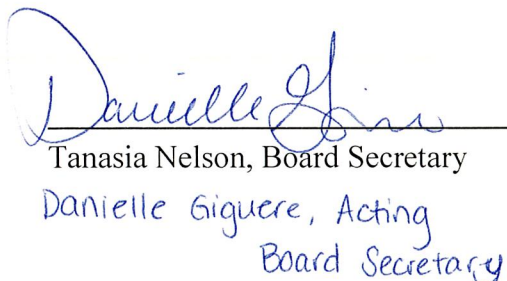 Danielle
Tanasia Nelson, Board Secretary
Danielle Giguere, Acting
Board Secretary